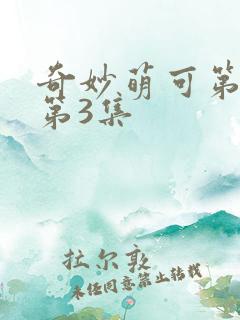 奇妙萌可第
第3集
拉尔敦
未经同意禁止转载